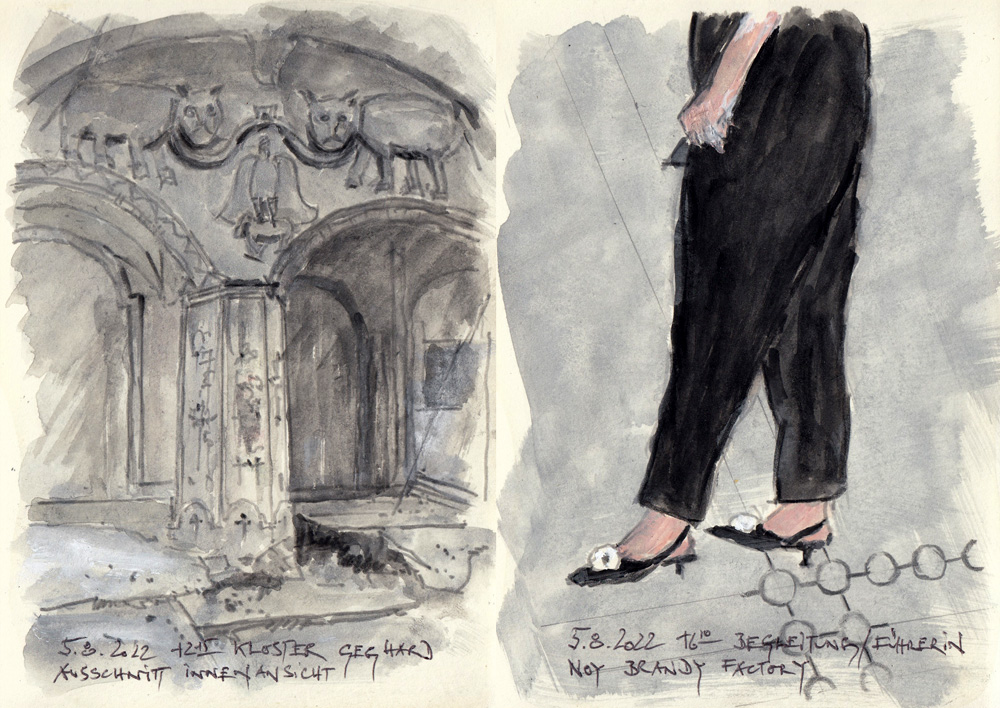 5.8.2022 12¹⁵ KLOSTER GEGHARD
AUSSCHNITT INNENANSICHT
5.8.2022 16¹⁰ BEGLEITUNG/FÜHRERIN
NOY BRANDY FACTORY